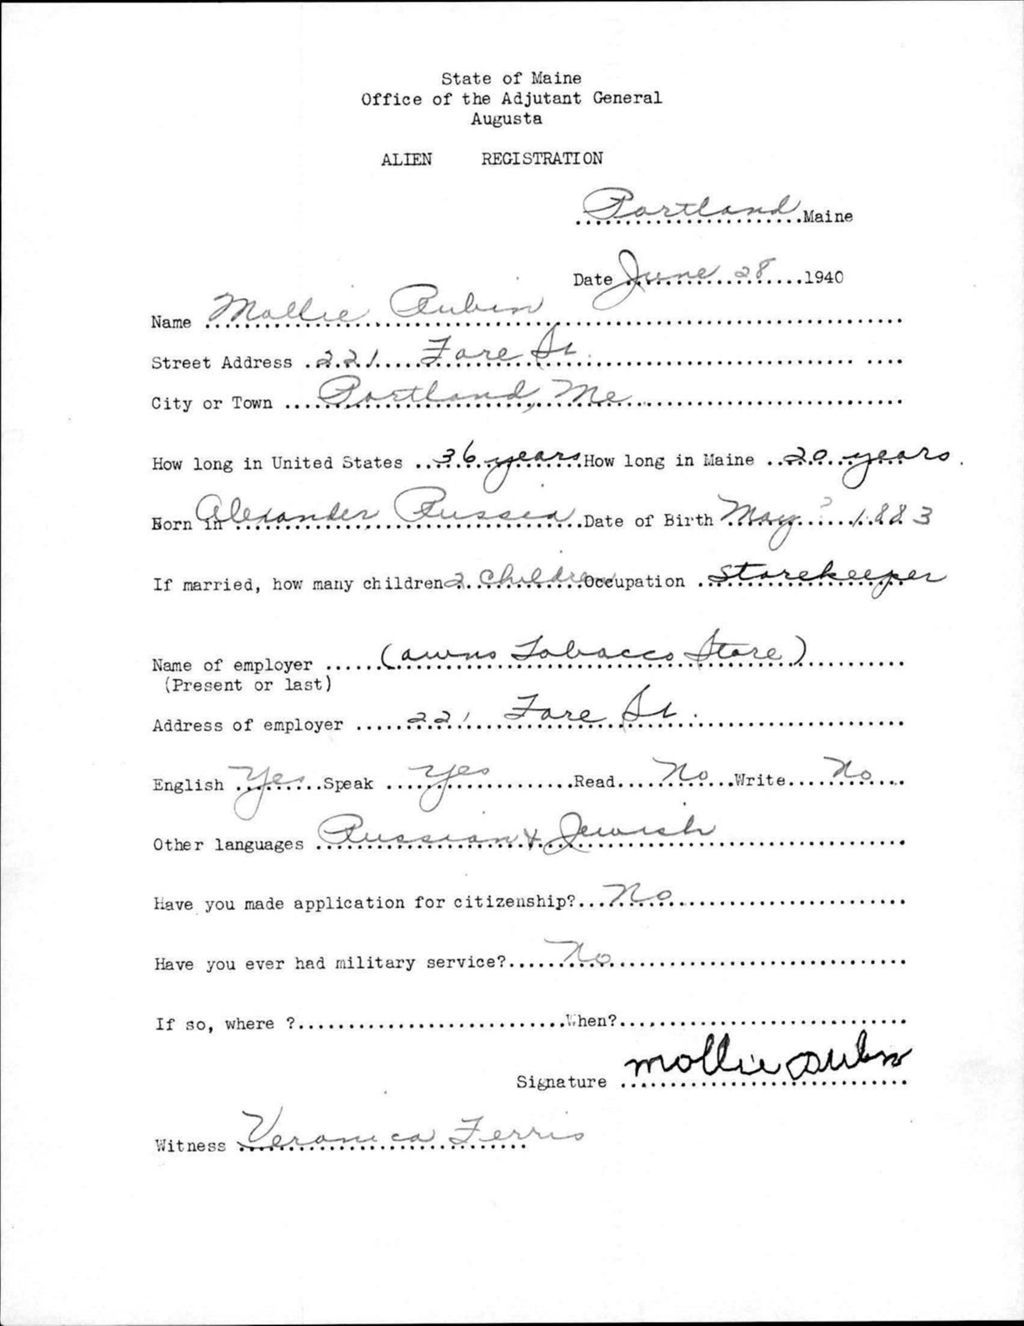 State of Maine
Office of the Adjutant General
Augusta
ALIEN REGISTRATION
Portland Maine
Date June 28 1940
Name Mollie Rubin
Street Address 221 Fore St.
City or Town Portland, Me
How long in United States 36 years How long in Maine 20 years.
Born in Alexander Russia Date of Birth May ? 1883
If married, how many children 2 children Occupation Storekeeper
Name of employer (owns Tobacco Store)
(Present or last)
Address of employer 221 Fore St.
English Yes Speak Yes Read No Write No
Other languages Russian & Jewish
Have you made application for citizenship? No
Have you ever had military service? No
If so, where ? When?
Signature mollie Rubin
Witness Veronica Ferris